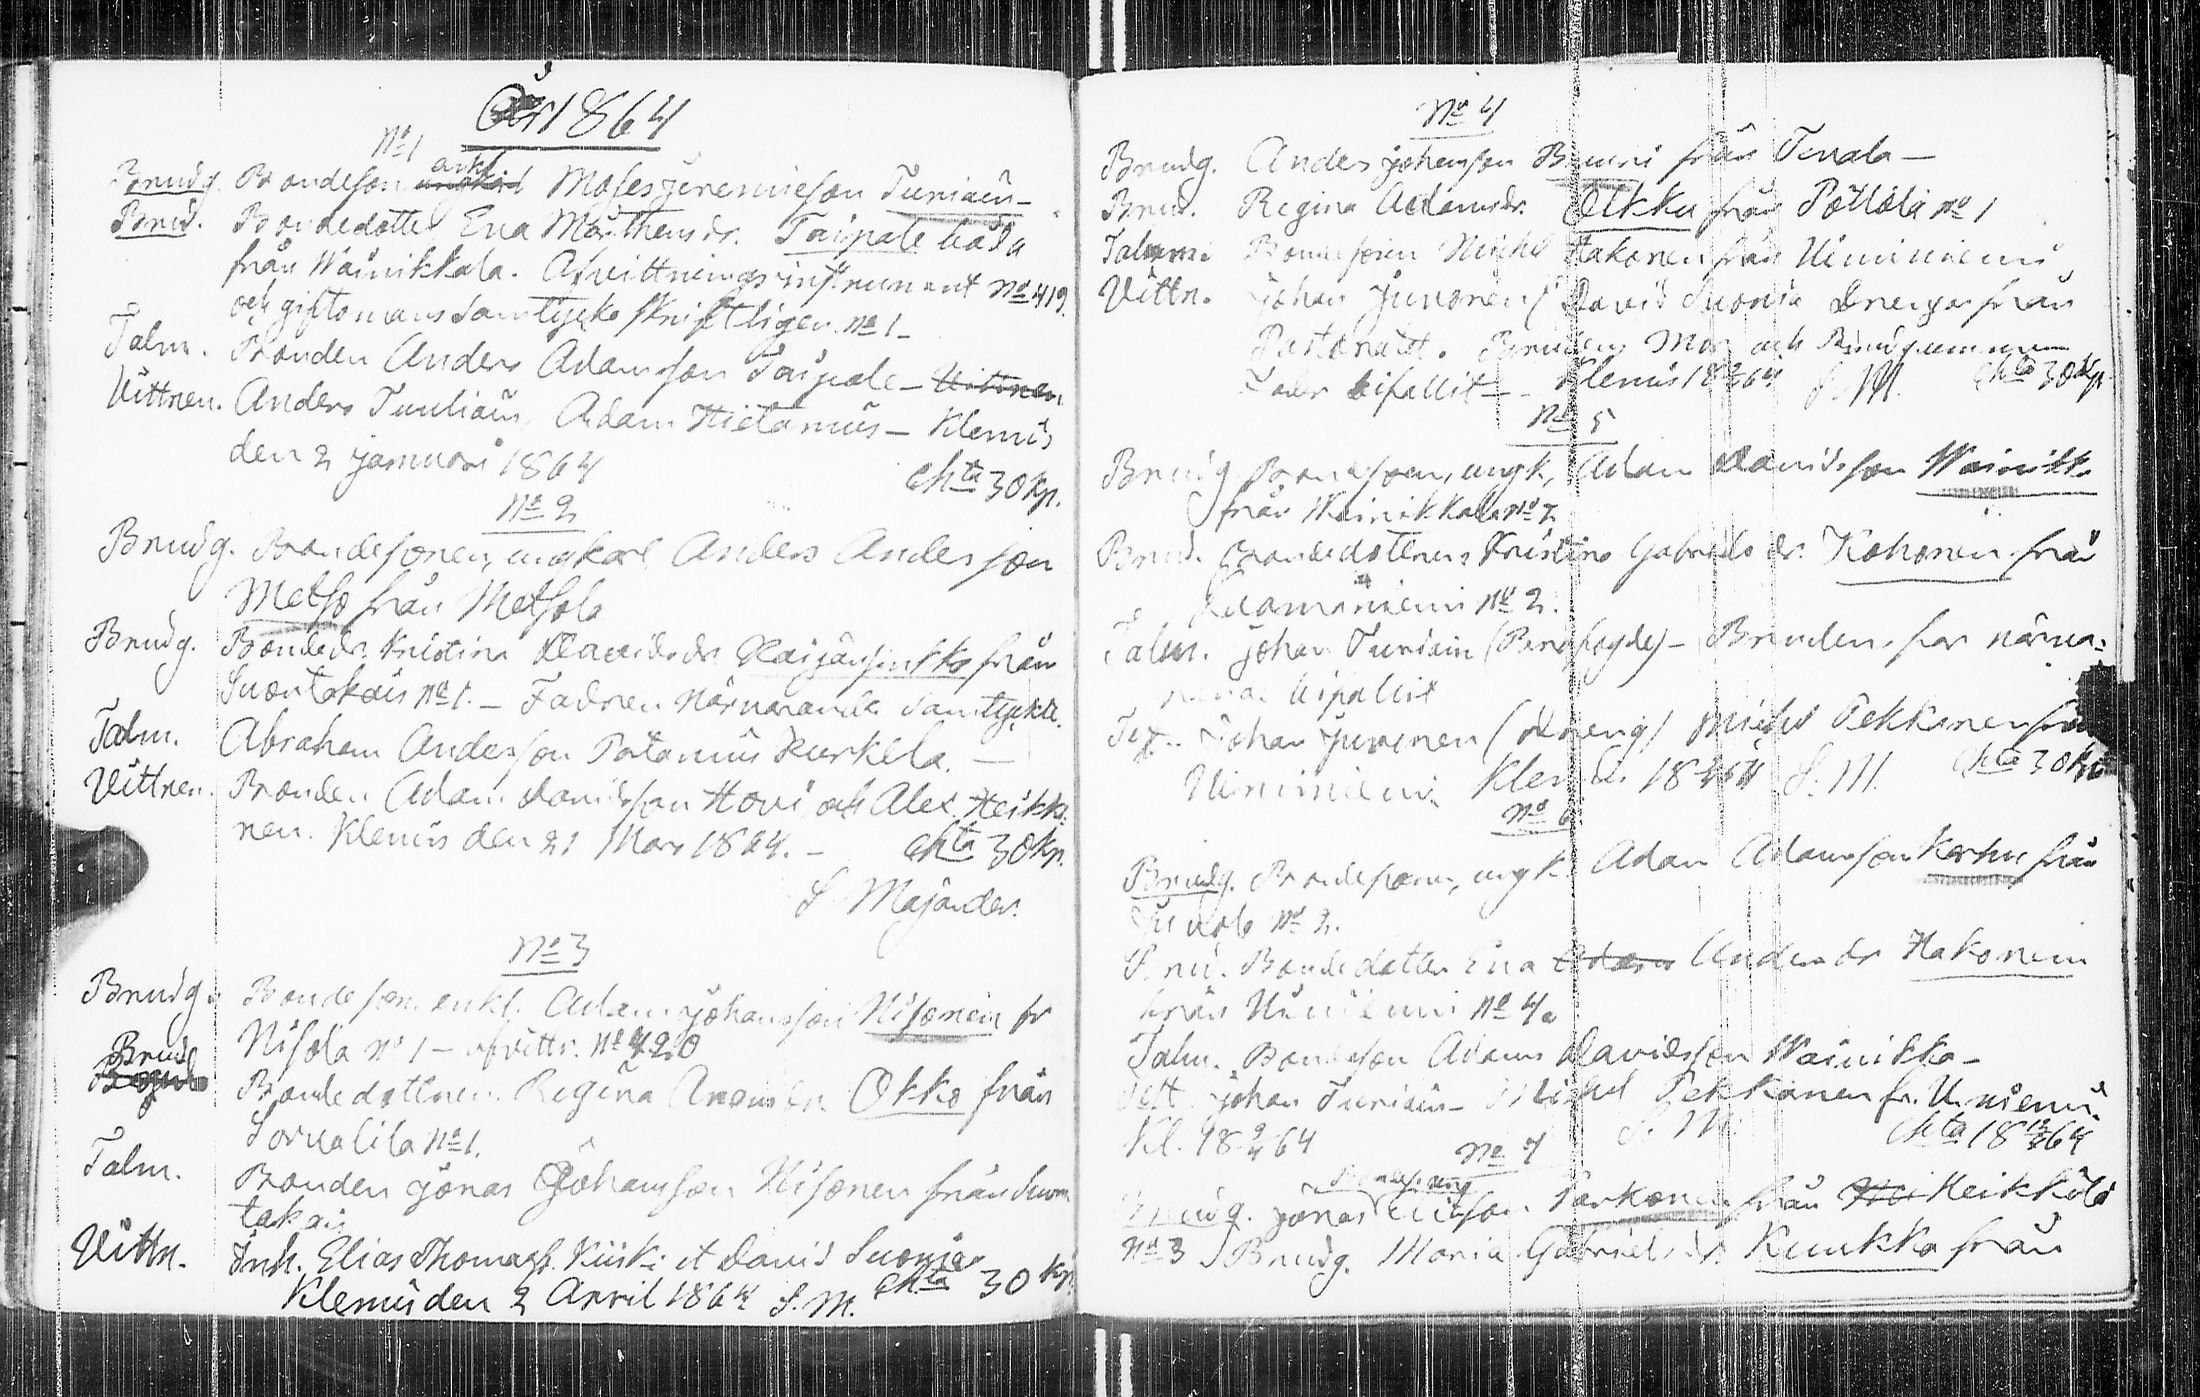 År 1864
No 1
Brudg. Bondeson enkl. Moses Jeremieson Turiain
Brud. Bondedotter Eva Mårthensdr. Taipale båda
från Wainikkala. Afvittringsinstrument No 419
och giftomans samtycke skriftligen No 1 –
Talm. Bonden Anders Adamsson Taipale – Vittnen
Vittnen. Anders Tuuliain, Adam Hietamiis – Klemis
den 2 januari 1864
Chta 30 kp.
No 2
Brudg. Bondesonen, ungkarl Anders Andersson
Metso från Metsola
Brudg. Bondedr. Kristina Davidsdr. Kaijansinkko från
Suontakais No 1. – Fadren närvarande samtyckte.
Talm. Abraham Andersson Potamiis Kurkela. –
Vittnen. Bonden Adam Davidsson Hovi och Alex. Heikko-
nen. Klemis den 21 Mars 1864. – Chta 30 kp.
S. Majander.
No 3
Brudg. Bondeson enkl. Adam Johansson Niisonen fr
Nisola No 1 – afvittr. No 420
Brud Bondedottren Regina Okko från
Sorvalila No 1.
Talm. Bonden Jonas Johansson Niisonen från Suon
takais
Vittn. Inh. Elias Thomass. Kiiski et David Suonio
Klemis den 2 April 1864 S. M. Chta 30 kp.
No 4
Brudg. Anders Johansson Bruuni från Tenala –
Brud. Regina Adamsdr. Olkku från Pöllölä No 1
Talem. Bondesonen Michel Hakonen från Uiminiemi
Vittn. Johan Juvonen / David Suonio Drengar från
Pastoratet. Brudens Mor och Brudgummens
Fader bifallit – Klemis 18 64 S. M. Chta 30 kp.
No 5
Brudg. Bondesonen, ungk. Adam Davidsson Wainikka
från Wainikkala No 7
Brud. Bondedottren Kristina Gabrielsdr. Kohonen från
No 2.
Talm. Johan Turiain (Bergfogde) – Brudens far närva-
rande bifallit
Johan Juvonen (dreng) Michel Pekkanen från
Uiminiemi. Klemis 18 64 S. M. Chta 30 kp
No 6
Brudg. Bondesonen, ungk. Adam Adamsson Karhu från
No 2.
Brud. Bondedotter Eva Adams Andersdr Hakonen
från Uiminiemi No 4.
Talm. Bondeson Adam Davidsson Wainikka –
Johan Turiain – Michel Pekkanen fr. U.niemi.
Kl. 18 9/4 64 S. M. Chta 18 64
No 7
Brudg. Jonas Ericsson Parkonen från Heikkilä
No 3 Brudg. Maria Gabrielsdr Kuukka från